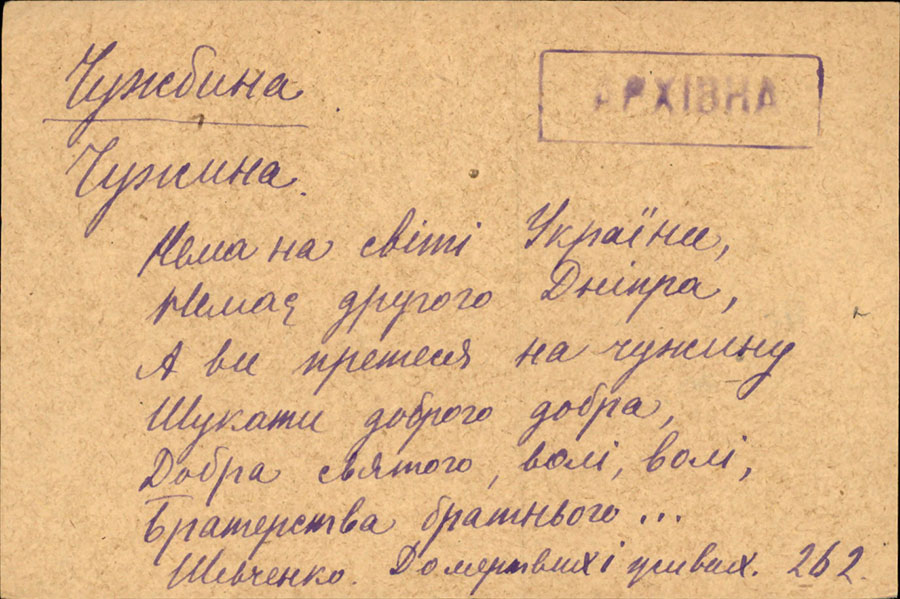 Чужбина
АРХІВНА
Чужина.
Нема на світі України,
Немає другого Дніпра,
А ви претеся на чужину
Шукати доброго добра,
Добра святого, волі, волі,
Братерства братнього...
Шевченко. До мертвих і живих. 262.